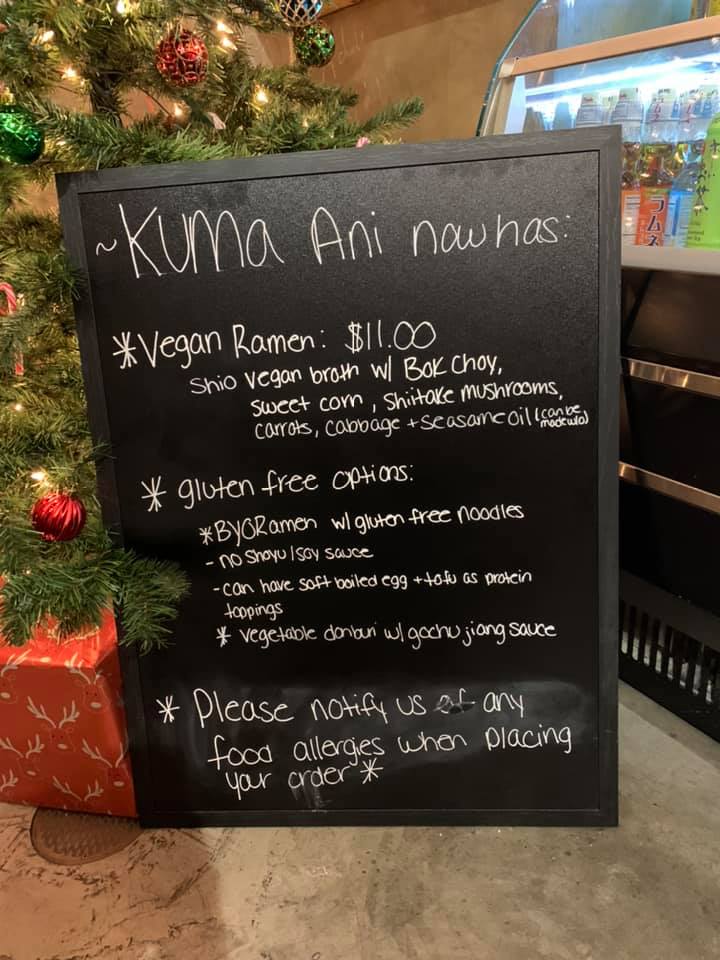 ~KUMA Ani now has:
*Vegan Ramen: $11.00
Shio vegan broth w/ Bok Choy,
sweet corn, Shiitake mushrooms,
carrots, cabbage + seasame oil (can be
made w/o)
* gluten free options:
*BYORamen w/ gluten free noodles
- no Shoyu/soy sauce
- can have soft boiled egg + tofu as protein
toppings
* vegetable donburi w/ gochujiang sauce
* Please notify us of any
food allergies when placing
your order *
ラムネ